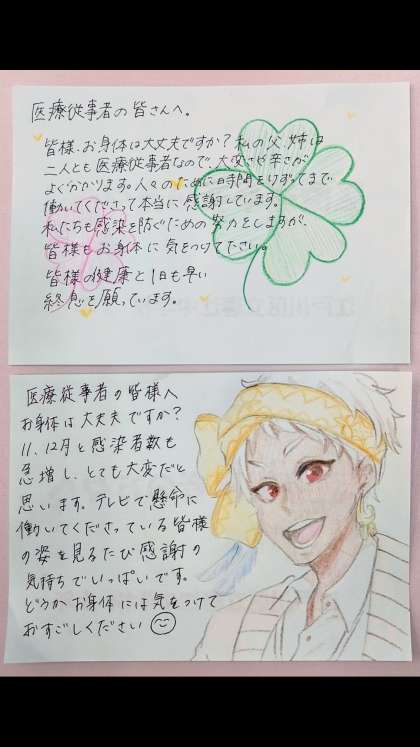 医療従事者の皆さんへ。
皆様、お身体は大丈夫ですか？私の父、姉は
二人とも医療従事者なので、大変さや辛さが
よくわかります。人々のために時間をけずってまで
働いてくださって本当に感謝しています。
私たちも感染を防ぐための努力をしますが、
皆様もお身体に気をつけてください。
皆様の健康と1日も早い
終息を願っています。
医療従事者の皆様へ
お身体は大丈夫ですか？
11、12月と感染者数も
急増し、とても大変だと
思います。テレビで懸命に
働いてくださっている皆様
の姿を見るたび感謝の
気持ちでいっぱいです。
どうかお身体には気をつけて
おすごしください